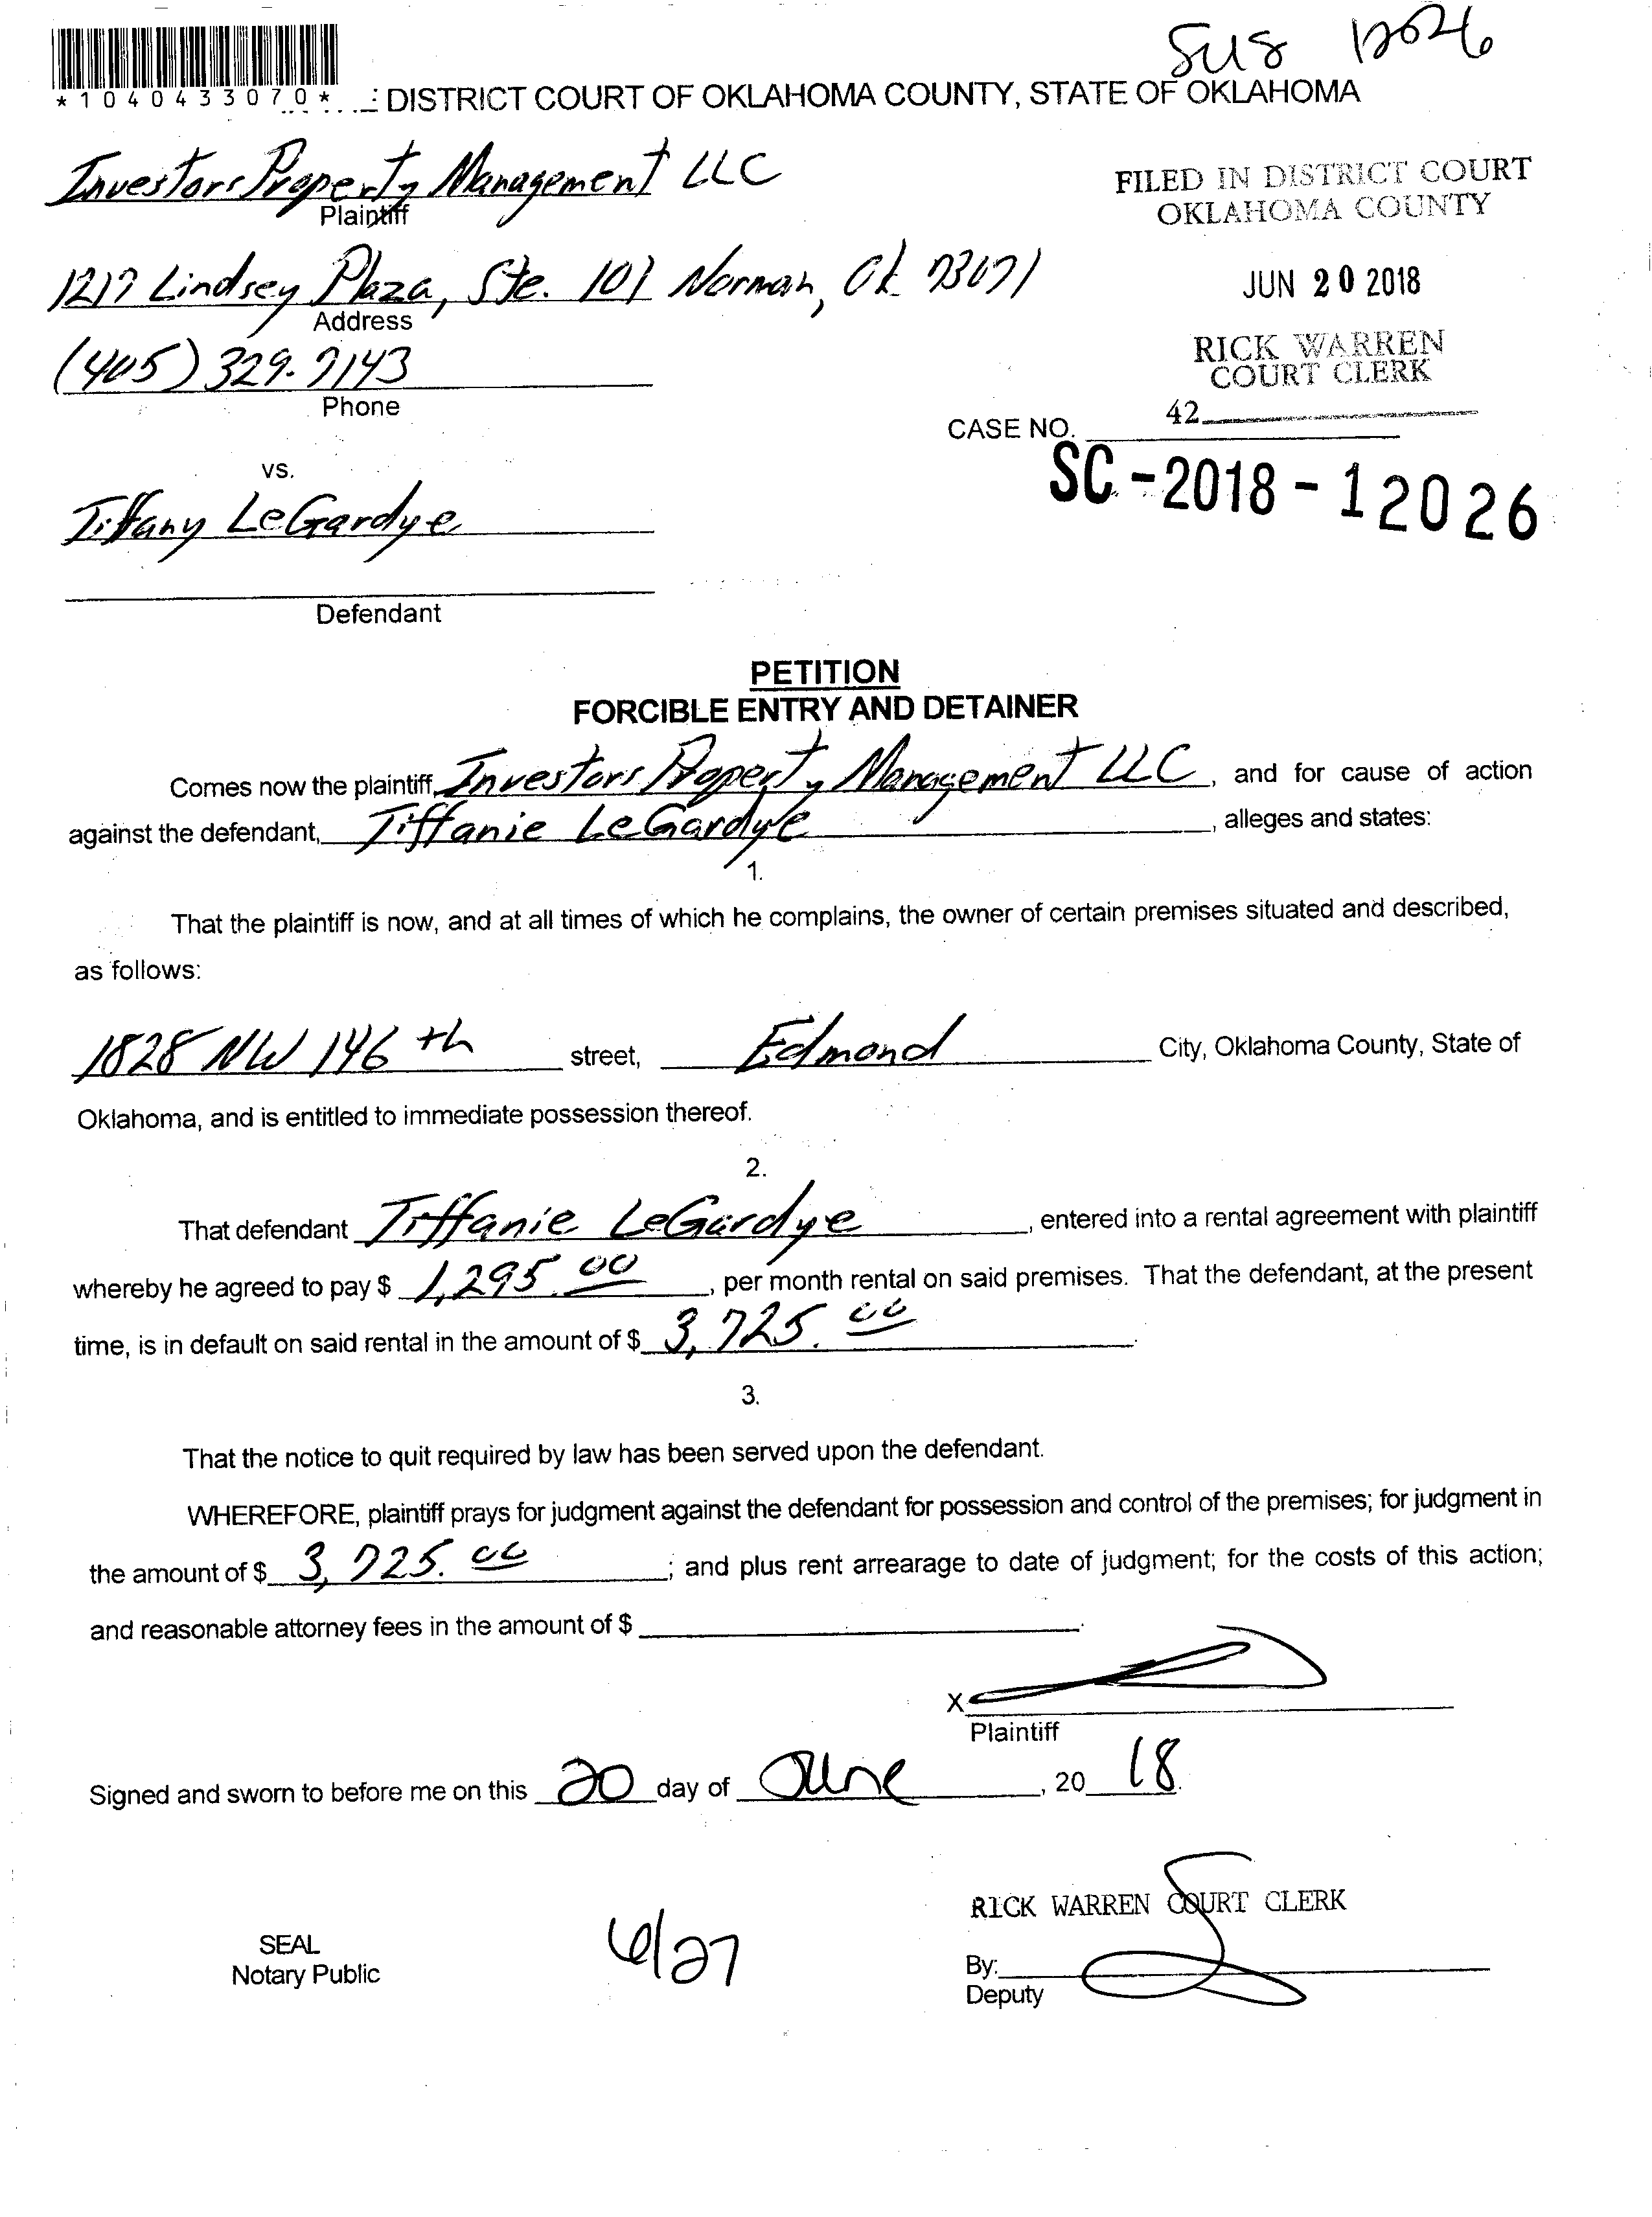 SUS 12026
*1040433070*
DISTRICT COURT OF OKLAHOMA COUNTY, STATE OF OKLAHOMA
Investors Property Management LLC
Plaintiff
FILED IN DISTRICT COURT
OKLAHOMA COUNTY
1217 Lindsey Plaza, Ste. 101 Norman, Ok 73071
Address
JUN 20 2018
(405) 329-7143
Phone
RICK WARREN
COURT CLERK
42
CASE NO.
SC-2018-12026
vs.
Tiffany LeGardye
Defendant
PETITION
FORCIBLE ENTRY AND DETAINER
Comes now the plaintiff, Investors Property Management LLC, and for cause of action
against the defendant, Tiffanie LeGardye, alleges and states:
1.
That the plaintiff is now, and at all times of which he complains, the owner of certain premises situated and described,
as follows:
1828 NW 146th street, Edmond City, Oklahoma County, State of
Oklahoma, and is entitled to immediate possession thereof.
2.
That defendant Tiffanie LeGardye, entered into a rental agreement with plaintiff
whereby he agreed to pay $ 1,295.00, per month rental on said premises. That the defendant, at the present
time, is in default on said rental in the amount of $ 3,725.00.
3.
That the notice to quit required by law has been served upon the defendant.
WHEREFORE, plaintiff prays for judgment against the defendant for possession and control of the premises; for judgment in
the amount of $ 3,725.00; and plus rent arrearage to date of judgment; for the costs of this action;
and reasonable attorney fees in the amount of $
X
Plaintiff
Signed and sworn to before me on this 20 day of June, 20 18.
RICK WARREN COURT CLERK
SEAL
Notary Public
6/27
By:
Deputy